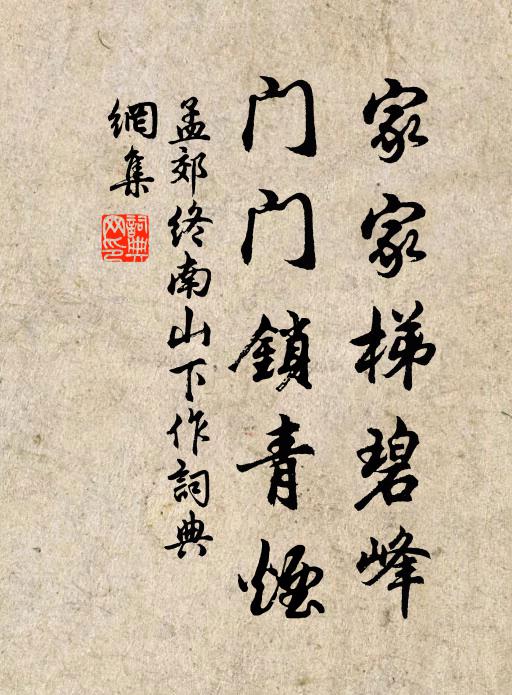 家家梯碧峰
门门鎖青煙
孟郊终南山下作詞典
網集
詞典网印